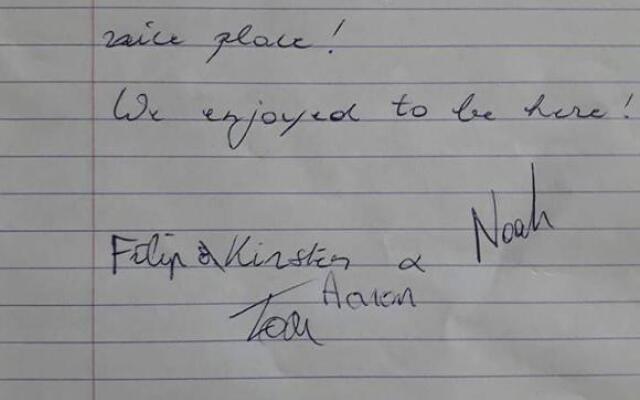 nice place!
We enjoyed to be here!
Filip & Kirsten & Noah
Aaron